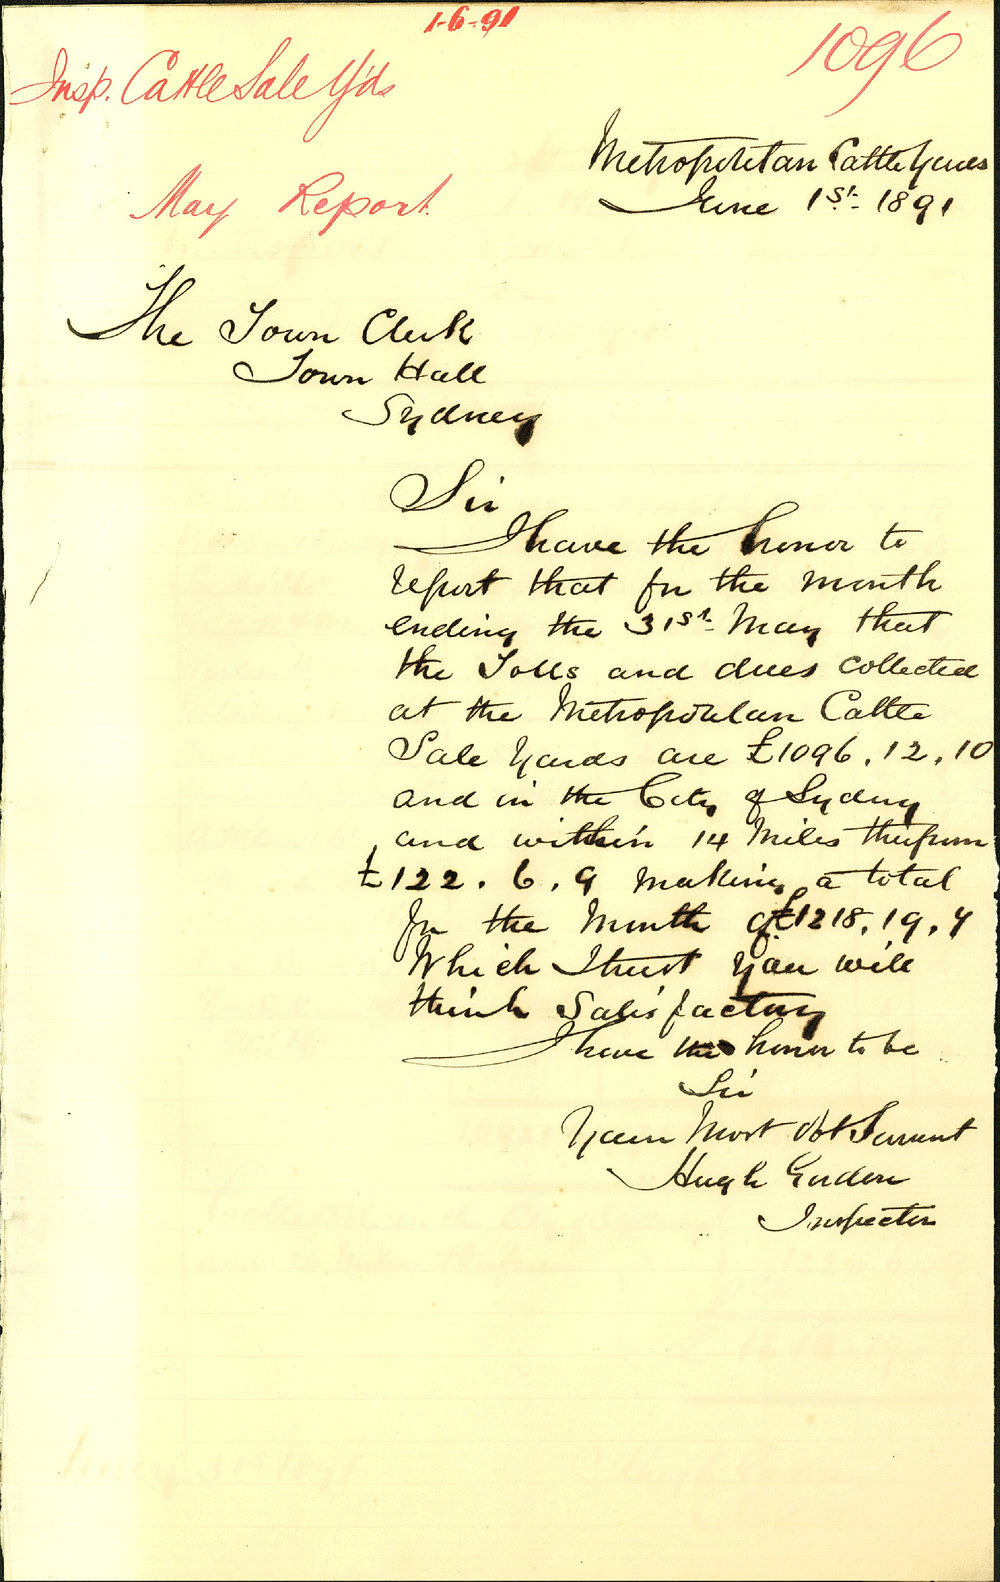 1-6-91
1096
Insp. Cattle Sale Yds
Metropolitan Cattle Yards
May Report
June 1st. 1891
The Town Clerk
Town Hall
Sydney
Sir
I have the honor to
report that for the month
ending the 31st. May that
the Tolls and dues collected
at the Metropolitan Cattle
Sale Yards are £1096.12.10
and in the City of Sydney
and within 14 Miles therefrom
£122.6.9 making a total
for the Month of £1218.19.7
Which I trust you will
think Satisfactory
I have the honor to be
Sir
Your Most Obt Servant
Hugh Gordon
Inspector
31st 1891